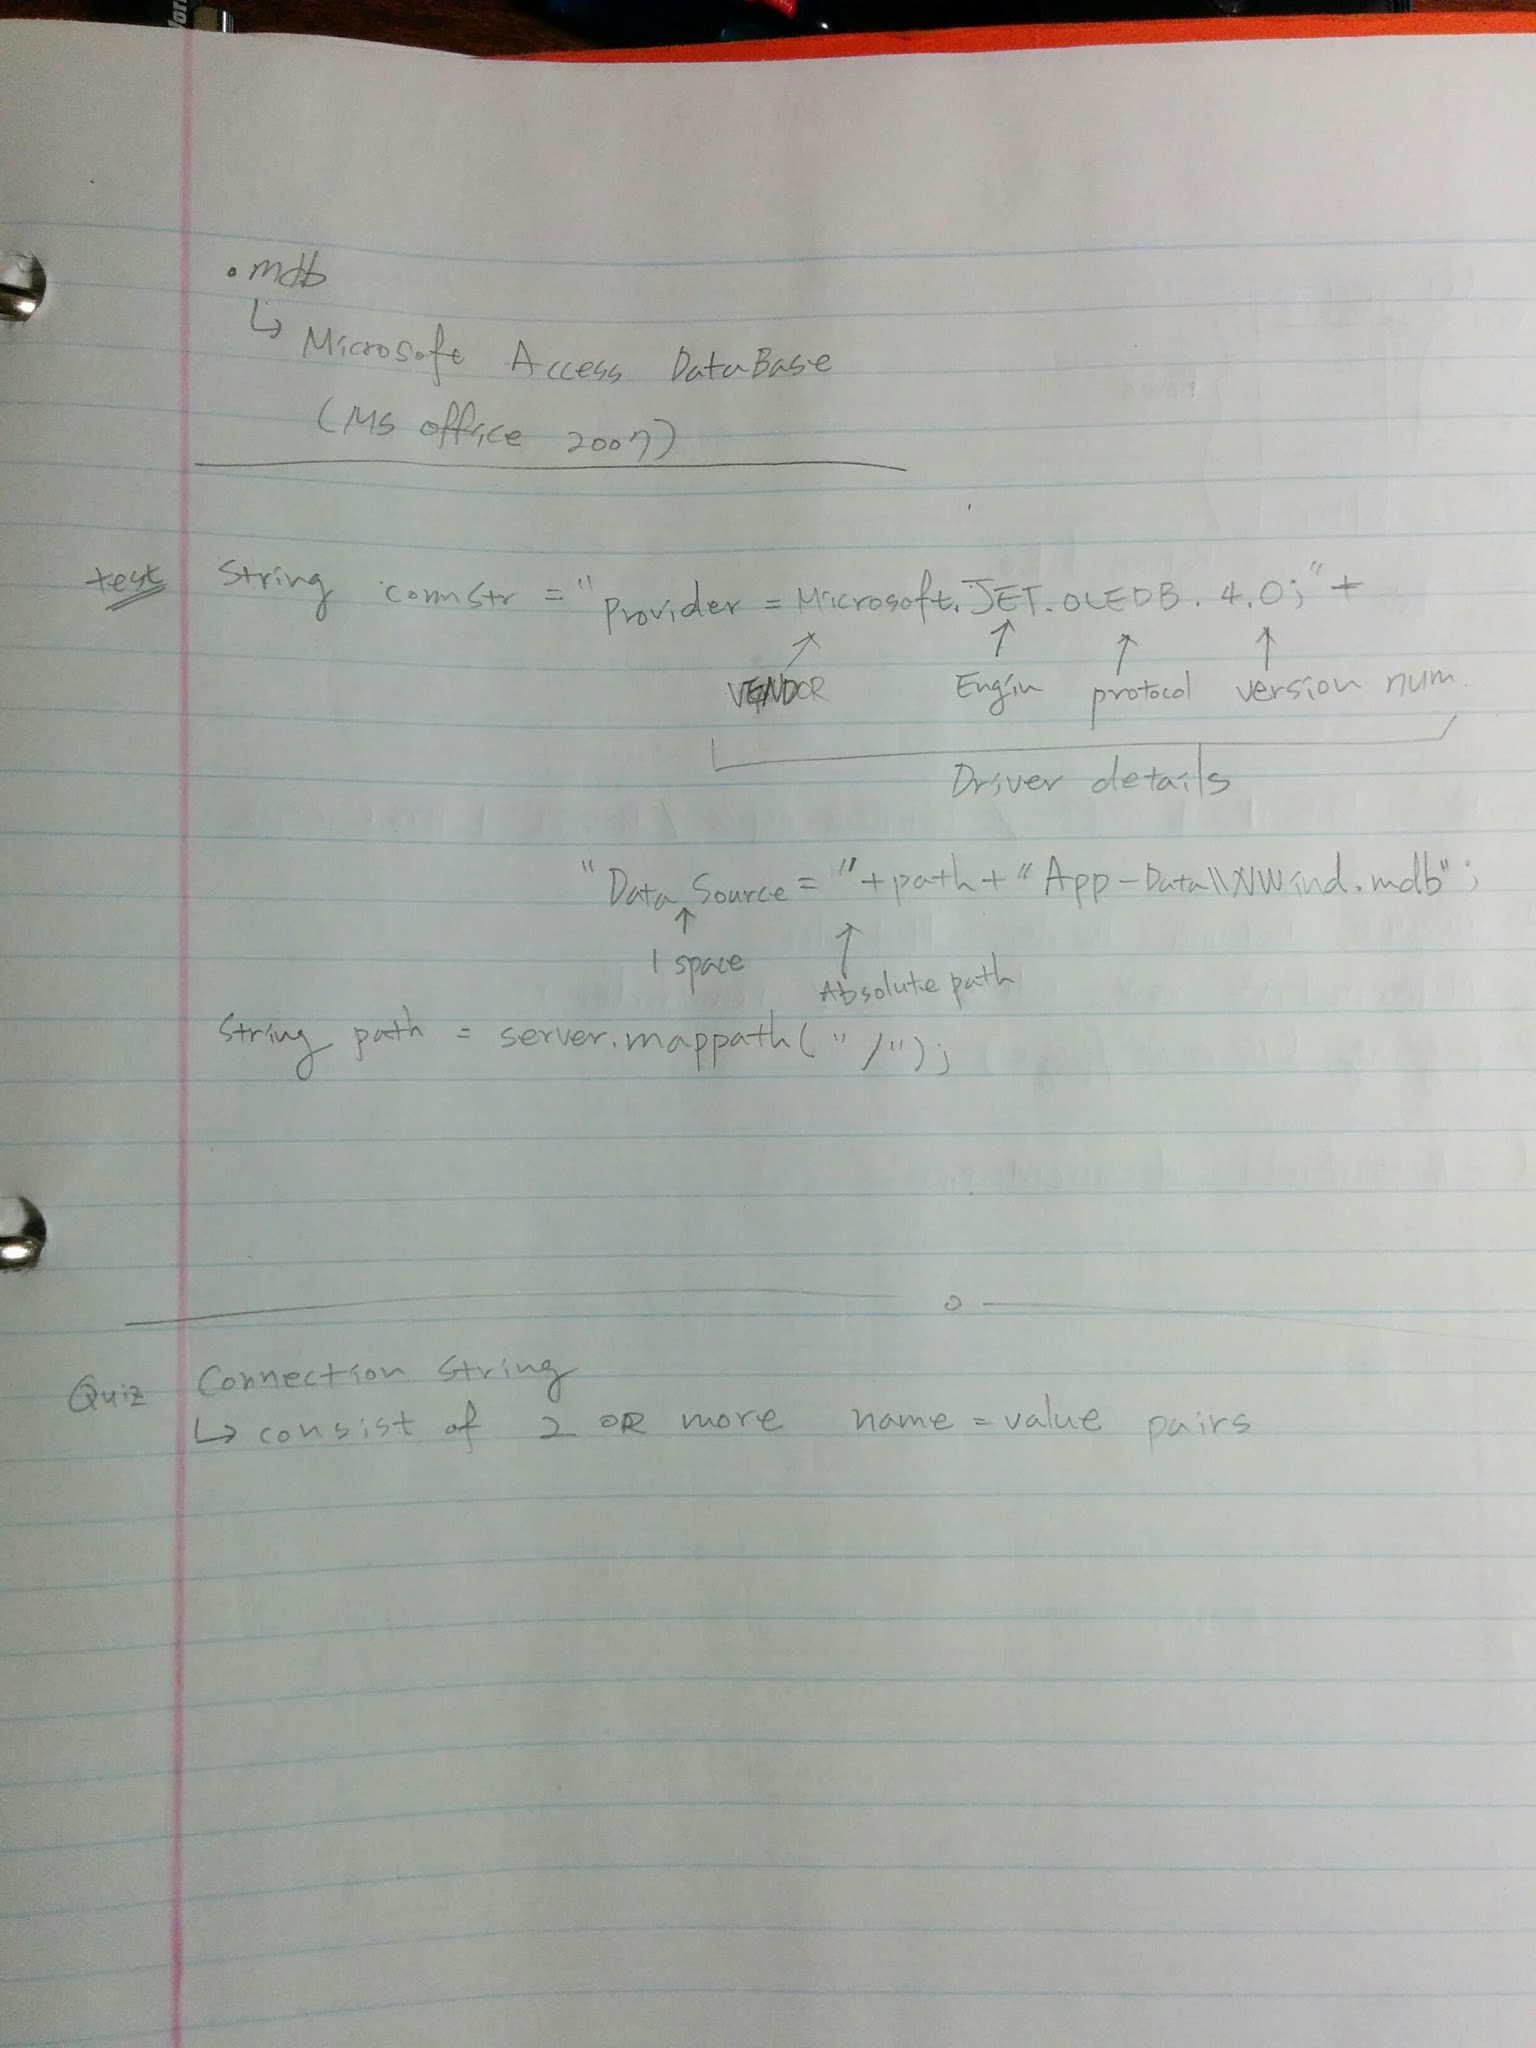 .mdb
↳ Microsoft Access DataBase
(MS office 2007)
test String connStr = "Provider = Microsoft.JET.OLEDB.4.0;" +
VENDOR Engin protocol version num.
Driver details
"Data Source = "+path+"App-Data\\NWind.mdb";
1 space
Absolute path
String path = server.mappath("/");
Quiz Connection String
↳ consist of 2 OR more name = value pairs